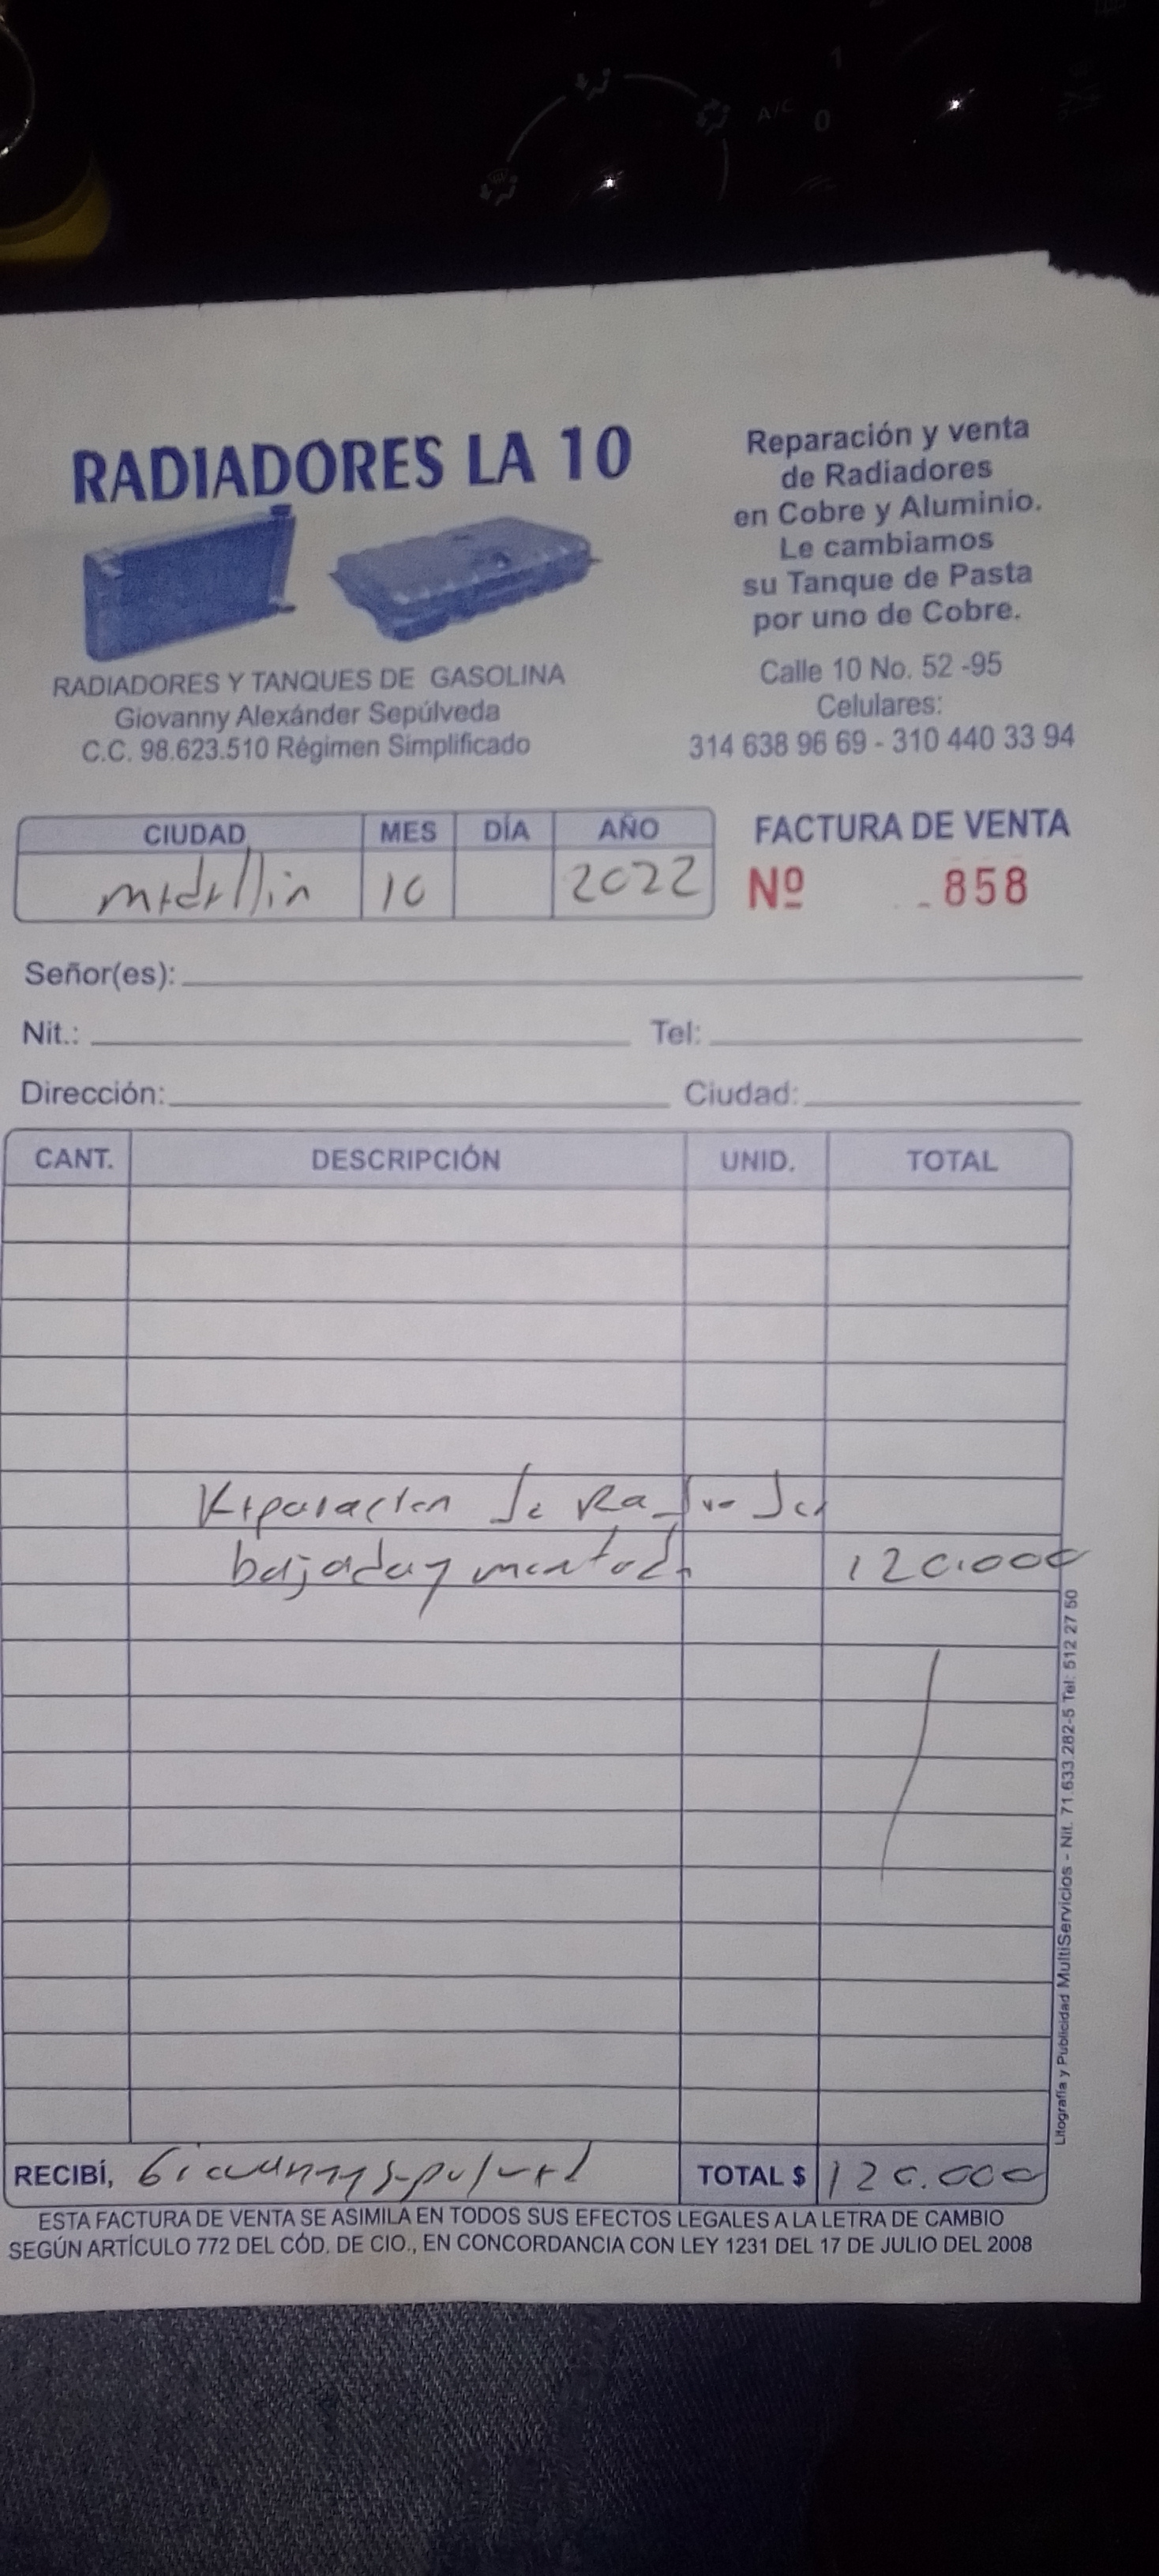 RADIADORES LA 10
RADIADORES Y TANQUES DE GASOLINA
Giovanny Alexánder Sepúlveda
C.C. 98.623.510 Régimen Simplificado
Reparación y venta
de Radiadores
en Cobre y Aluminio.
Le cambiamos
su Tanque de Pasta
por uno de Cobre.
Calle 10 No. 52 -95
Celulares:
314 638 96 69 - 310 440 33 94
CIUDAD MES DÍA AÑO
Medellin 10 2022
FACTURA DE VENTA
Nº 858
Señor(es):
Nit.: Tel:
Dirección: Ciudad:
CANT. DESCRIPCIÓN UNID. TOTAL
Reparacion de Radiador
bajada y montada 120.000
RECIBÍ, Giovanny Sepulved TOTAL $ 120.000
ESTA FACTURA DE VENTA SE ASIMILA EN TODOS SUS EFECTOS LEGALES A LA LETRA DE CAMBIO
SEGÚN ARTÍCULO 772 DEL CÓD. DE CIO., EN CONCORDANCIA CON LEY 1231 DEL 17 DE JULIO DEL 2008
Litografía y Publicidad MultiServicios - Nit. 71.633.282-5 Tel: 512 27 50
A/C
1
0